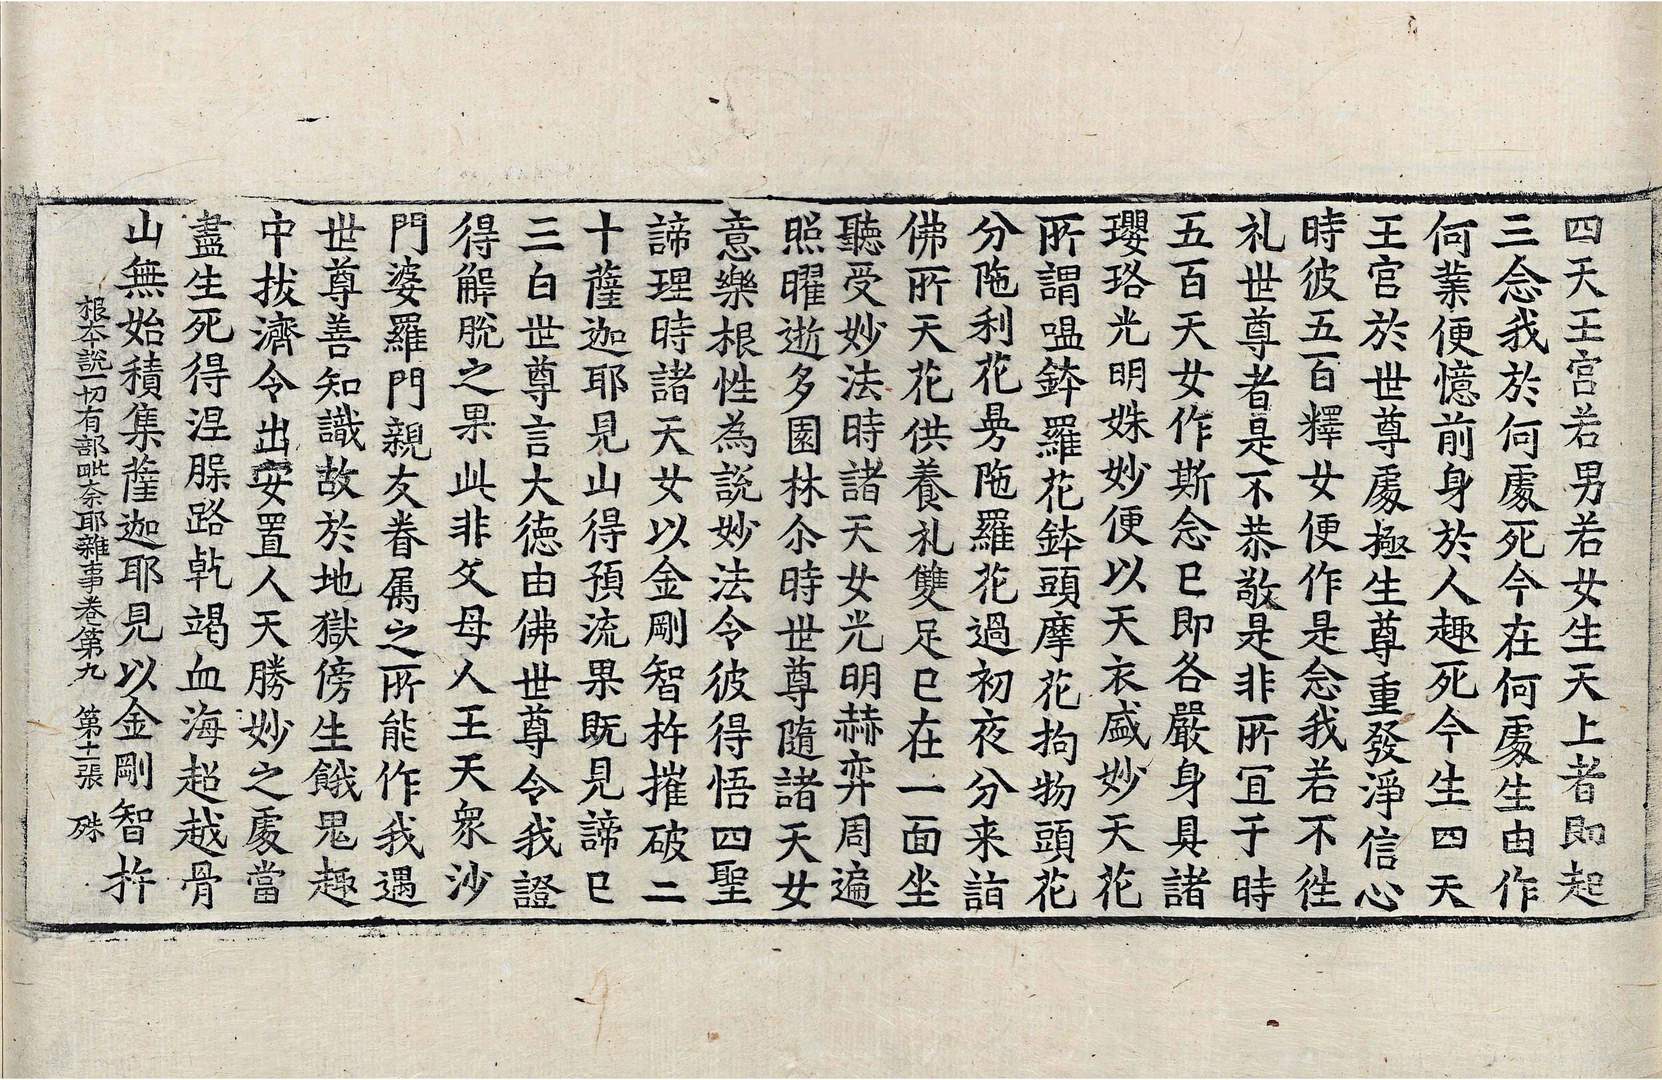 四天王宮若男若女生天上者即起
三念我於何處死今在何處生由作
何業便憶前身於人趣死今生四天
王宮於世尊處極生尊重發淨信心
時彼五百釋女便作是念我若不徃
礼世尊者是不恭敬是非所冝于時
五百天女作斯念已即各嚴身具諸
瓔珞光明姝妙便以天衣盛妙天花
所謂嗢鉢羅花鉢頭摩花拘物頭花
分陁利花曼陁羅花過初夜分来詣
佛所天花供養礼雙足已在一面坐
聽受妙法時諸天女光明赫弈周遍
照曜逝多園林尒時世尊隨諸天女
意樂根性為説妙法令彼得悟四聖
諦理時諸天女以金剛智杵摧破二
十薩迦耶見山得預流果既見諦已
三白世尊言大德由佛世尊令我證
得解脫之果此非父母人王天衆沙
門婆羅門親友眷属之所能作我遇
世尊善知識故於地獄傍生餓鬼趣
中拔濟令出安置人天勝妙之處當
盡生死得涅槃路乹竭血海超越骨
山無始積集薩迦耶見以金剛智杵
根本說一切有部毗奈耶雜事卷第九 第十一張 殊